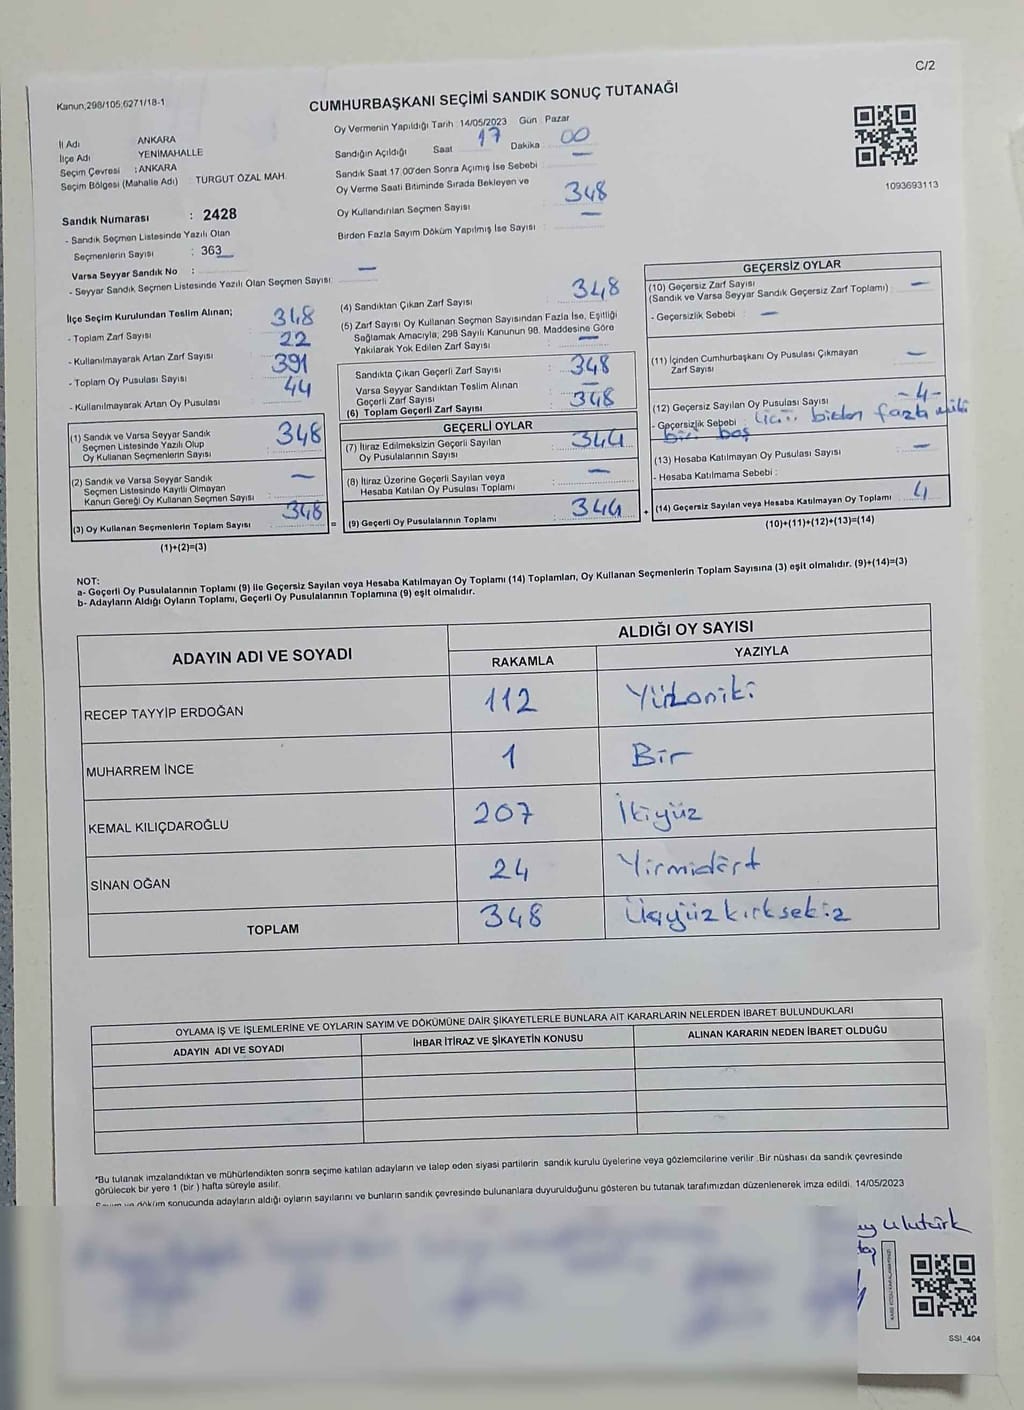 C/2
Kanun,298/105,6271/18-1
CUMHURBAŞKANI SEÇİMİ SANDIK SONUÇ TUTANAĞI
İl Adı ANKARA
İlçe Adı YENİMAHALLE
Seçim Çevresi : ANKARA
Seçim Bölgesi (Mahalle Adı) TURGUT ÖZAL MAH.
Oy Vermenin Yapıldığı Tarih : 14/05/2023 Gün : Pazar
Sandığın Açıldığı Saat 17 Dakika 00
Sandık Saat 17.00'den Sonra Açımış İse Sebebi : —
Oy Verme Saati Bitiminde Sırada Bekleyen ve
Oy Kullandırılan Seçmen Sayısı 348
Birden Fazla Sayım Döküm Yapılmış İse Sayısı : —
1093693113
Sandık Numarası : 2428
- Sandık Seçmen Listesinde Yazılı Olan
Seçmenlerin Sayısı : 363
Varsa Seyyar Sandık No :
- Seyyar Sandık Seçmen Listesinde Yazılı Olan Seçmen Sayısı: —
İlçe Seçim Kurulundan Teslim Alınan;
- Toplam Zarf Sayısı 348
- Kullanılmayarak Artan Zarf Sayısı 22
- Toplam Oy Pusulası Sayısı 391
- Kullanılmayarak Artan Oy Pusulası 44
(1) Sandık ve Varsa Seyyar Sandık
Seçmen Listesinde Yazılı Olup
Oy Kullanan Seçmenlerin Sayısı 348
(2) Sandık ve Varsa Seyyar Sandık
Seçmen Listesinde Kayıtlı Olmayan
Kanun Gereği Oy Kullanan Seçmen Sayısı —
(3) Oy Kullanan Seçmenlerin Toplam Sayısı 348
(1)+(2)=(3)
(4) Sandıktan Çıkan Zarf Sayısı 348
(5) Zarf Sayısı Oy Kullanan Seçmen Sayısından Fazla İse, Eşitliği
Sağlamak Amacıyla; 298 Sayılı Kanunun 98. Maddesine Göre
Yakılarak Yok Edilen Zarf Sayısı : —
Sandıkta Çıkan Geçerli Zarf Sayısı : 348
Varsa Seyyar Sandıktan Teslim Alınan
Geçerli Zarf Sayısı —
(6) Toplam Geçerli Zarf Sayısı : 348
GEÇERLİ OYLAR
(7) İtiraz Edilmeksizin Geçerli Sayılan
Oy Pusulalarının Sayısı : 344
(8) İtiraz Üzerine Geçerli Sayılan veya
Hesaba Katılan Oy Pusulası Toplamı : —
= (9) Geçerli Oy Pusulalarının Toplamı : 344 +
GEÇERSİZ OYLAR
(10) Geçersiz Zarf Sayısı
(Sandık ve Varsa Seyyar Sandık Geçersiz Zarf Toplamı) : —
- Geçersizlik Sebebi : —
(11) İçinden Cumhurbaşkanı Oy Pusulası Çıkmayan
Zarf Sayısı —
(12) Geçersiz Sayılan Oy Pusulası Sayısı -4-
- Geçersizlik Sebebi birden fazla
biri boş
(13) Hesaba Katılmayan Oy Pusulası Sayısı —
- Hesaba Katılmama Sebebi :
(14) Geçersiz Sayılan veya Hesaba Katılmayan Oy Toplamı 4
(10)+(11)+(12)+(13)=(14)
NOT:
a- Geçerli Oy Pusulalarının Toplamı (9) ile Geçersiz Sayılan veya Hesaba Katılmayan Oy Toplamı (14) Toplamları, Oy Kullanan Seçmenlerin Toplam Sayısına (3) eşit olmalıdır. (9)+(14)=(3)
b- Adayların Aldığı Oyların Toplamı, Geçerli Oy Pusulalarının Toplamına (9) eşit olmalıdır.
ADAYIN ADI VE SOYADI ALDIĞI OY SAYISI
RAKAMLA YAZIYLA
RECEP TAYYİP ERDOĞAN 112 Yüzoniki
MUHARREM İNCE 1 Bir
KEMAL KILIÇDAROĞLU 207 İkiyüz
SİNAN OĞAN 24 Yirmidört
TOPLAM 348 Üçyüzkırksekiz
OYLAMA İŞ VE İŞLEMLERİNE VE OYLARIN SAYIM VE DÖKÜMÜNE DAİR ŞİKAYETLERLE BUNLARA AİT KARARLARIN NELERDEN İBARET BULUNDUKLARI
ADAYIN ADI VE SOYADI İHBAR İTİRAZ VE ŞİKAYETİN KONUSU ALINAN KARARIN NEDEN İBARET OLDUĞU
*Bu tutanak imzalandıktan ve mühürlendikten sonra seçime katılan adayların ve talep eden siyasi partilerin sandık kurulu üyelerine veya gözlemcilerine verilir .Bir nüshası da sandık çevresinde
görülecek bir yere 1 (bir ) hafta süreyle asılır.
Sayım ve döküm sonucunda adayların aldığı oyların sayılarını ve bunların sandık çevresinde bulunanlara duyurulduğunu gösteren bu tutanak tarafımızdan düzenlenerek imza edildi. 14/05/2023
Ulutürk
SSI_404